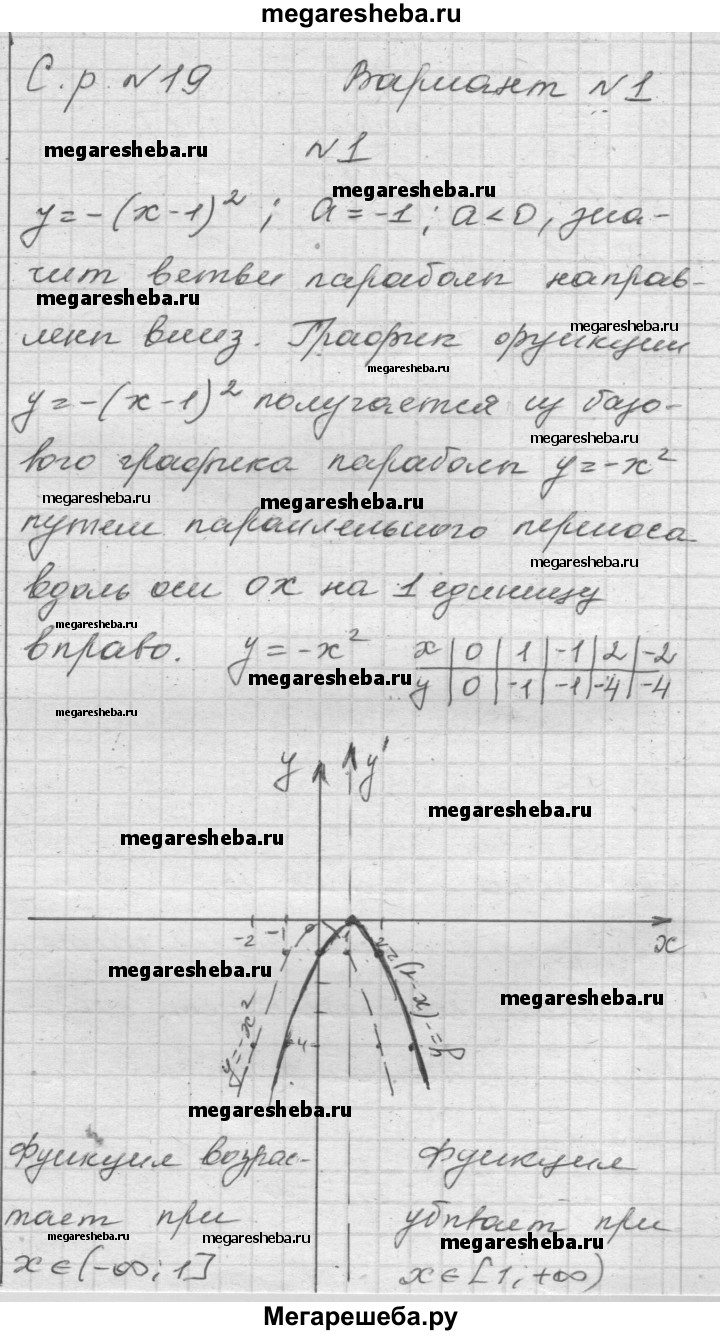 megaresheba.ru
С.р. №19 Вариант №1
megaresheba.ru №1
megaresheba.ru
y=-(x-1)²; a=-1; a<0, зна-
чит ветви параболы направ-
megaresheba.ru
megaresheba.ru
лены вниз. График функции
megaresheba.ru
y=-(x-1)² получается из базо-
megaresheba.ru
вого графика параболы y=-x²
megaresheba.ru megaresheba.ru
путем параллельного переноса
megaresheba.ru
вдоль оси ox на 1 единицу
megaresheba.ru
вправо. y=-x² x | 0 | 1 | -1 | 2 | -2
megaresheba.ru y | 0 | -1 | -1 | -4 | -4
megaresheba.ru
y y'
megaresheba.ru
megaresheba.ru
-2 -1 0 1 2 x
megaresheba.ru
megaresheba.ru
-4
y=-x² y=-(x-1)²
megaresheba.ru
Функция возрас- Функция
тает при убывает при
megaresheba.ru megaresheba.ru megaresheba.ru
x∈(-∞;1] x∈[1;+∞)
Мегарешеба.ру